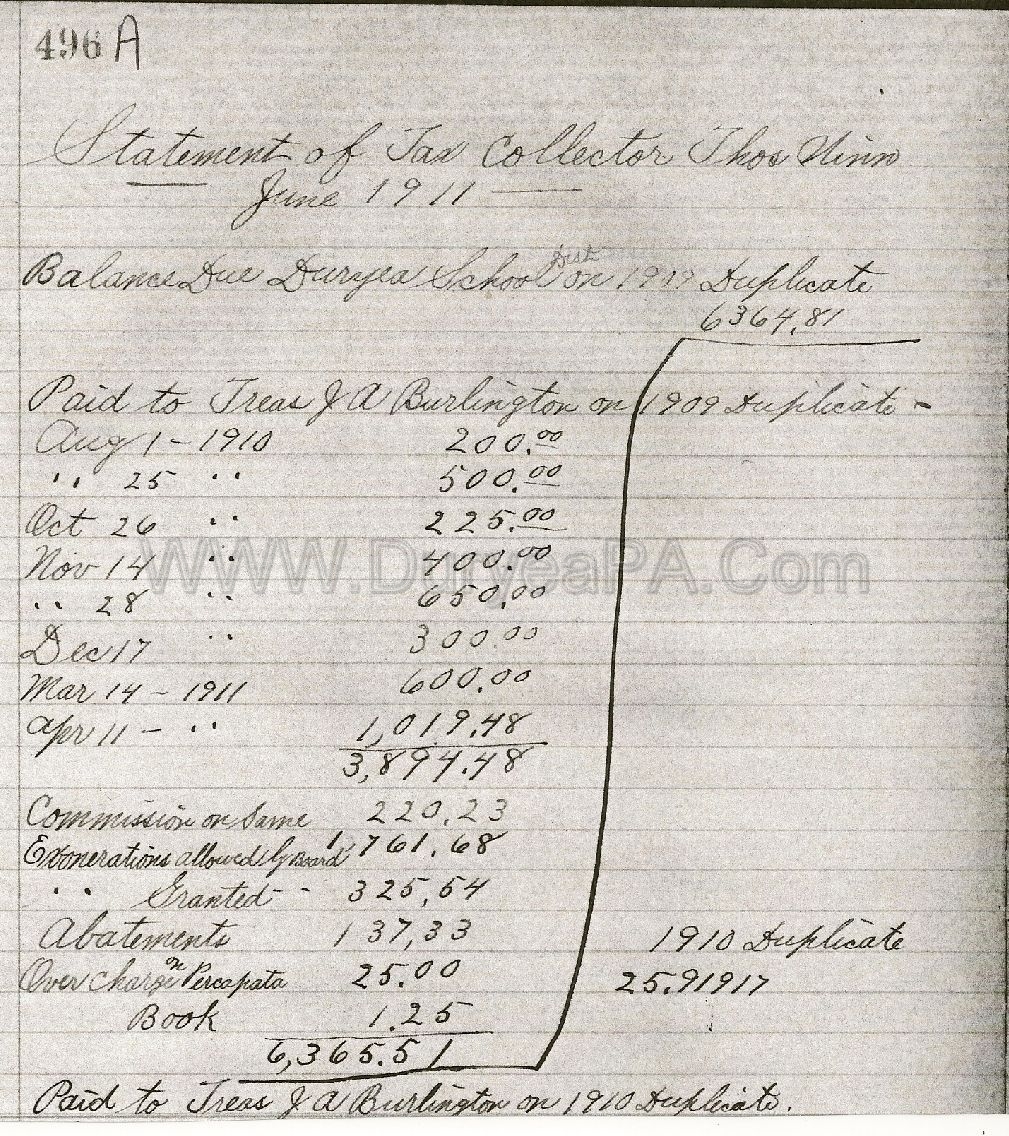 496 A
Statement of Tax Collector Thos Ninn
June 1911
Balance Due Duryea School Dist on 1909 Duplicate
6364.81
Paid to Treas J A Burlington on 1909 Duplicate -
Aug 1 - 1910 200.00
" 25 " 500.00
Oct 26 " 225.00
Nov 14 " 400.00
WWW.DuryeaPA.Com
" 28 " 650.00
Dec 17 " 300.00
Mar 14 - 1911 600.00
Apr 11 - " 1,019.48
3,894.48
Commission on Same 220.23
Exonerations allowed by Board 1761.68
" Granted - 325,54
Abatements 137,33
1910 Duplicate
Over Charge on Percapata 25.00
25.91917
Book 1.25
6,365.51
Paid to Treas J A Burlington on 1910 Duplicate.